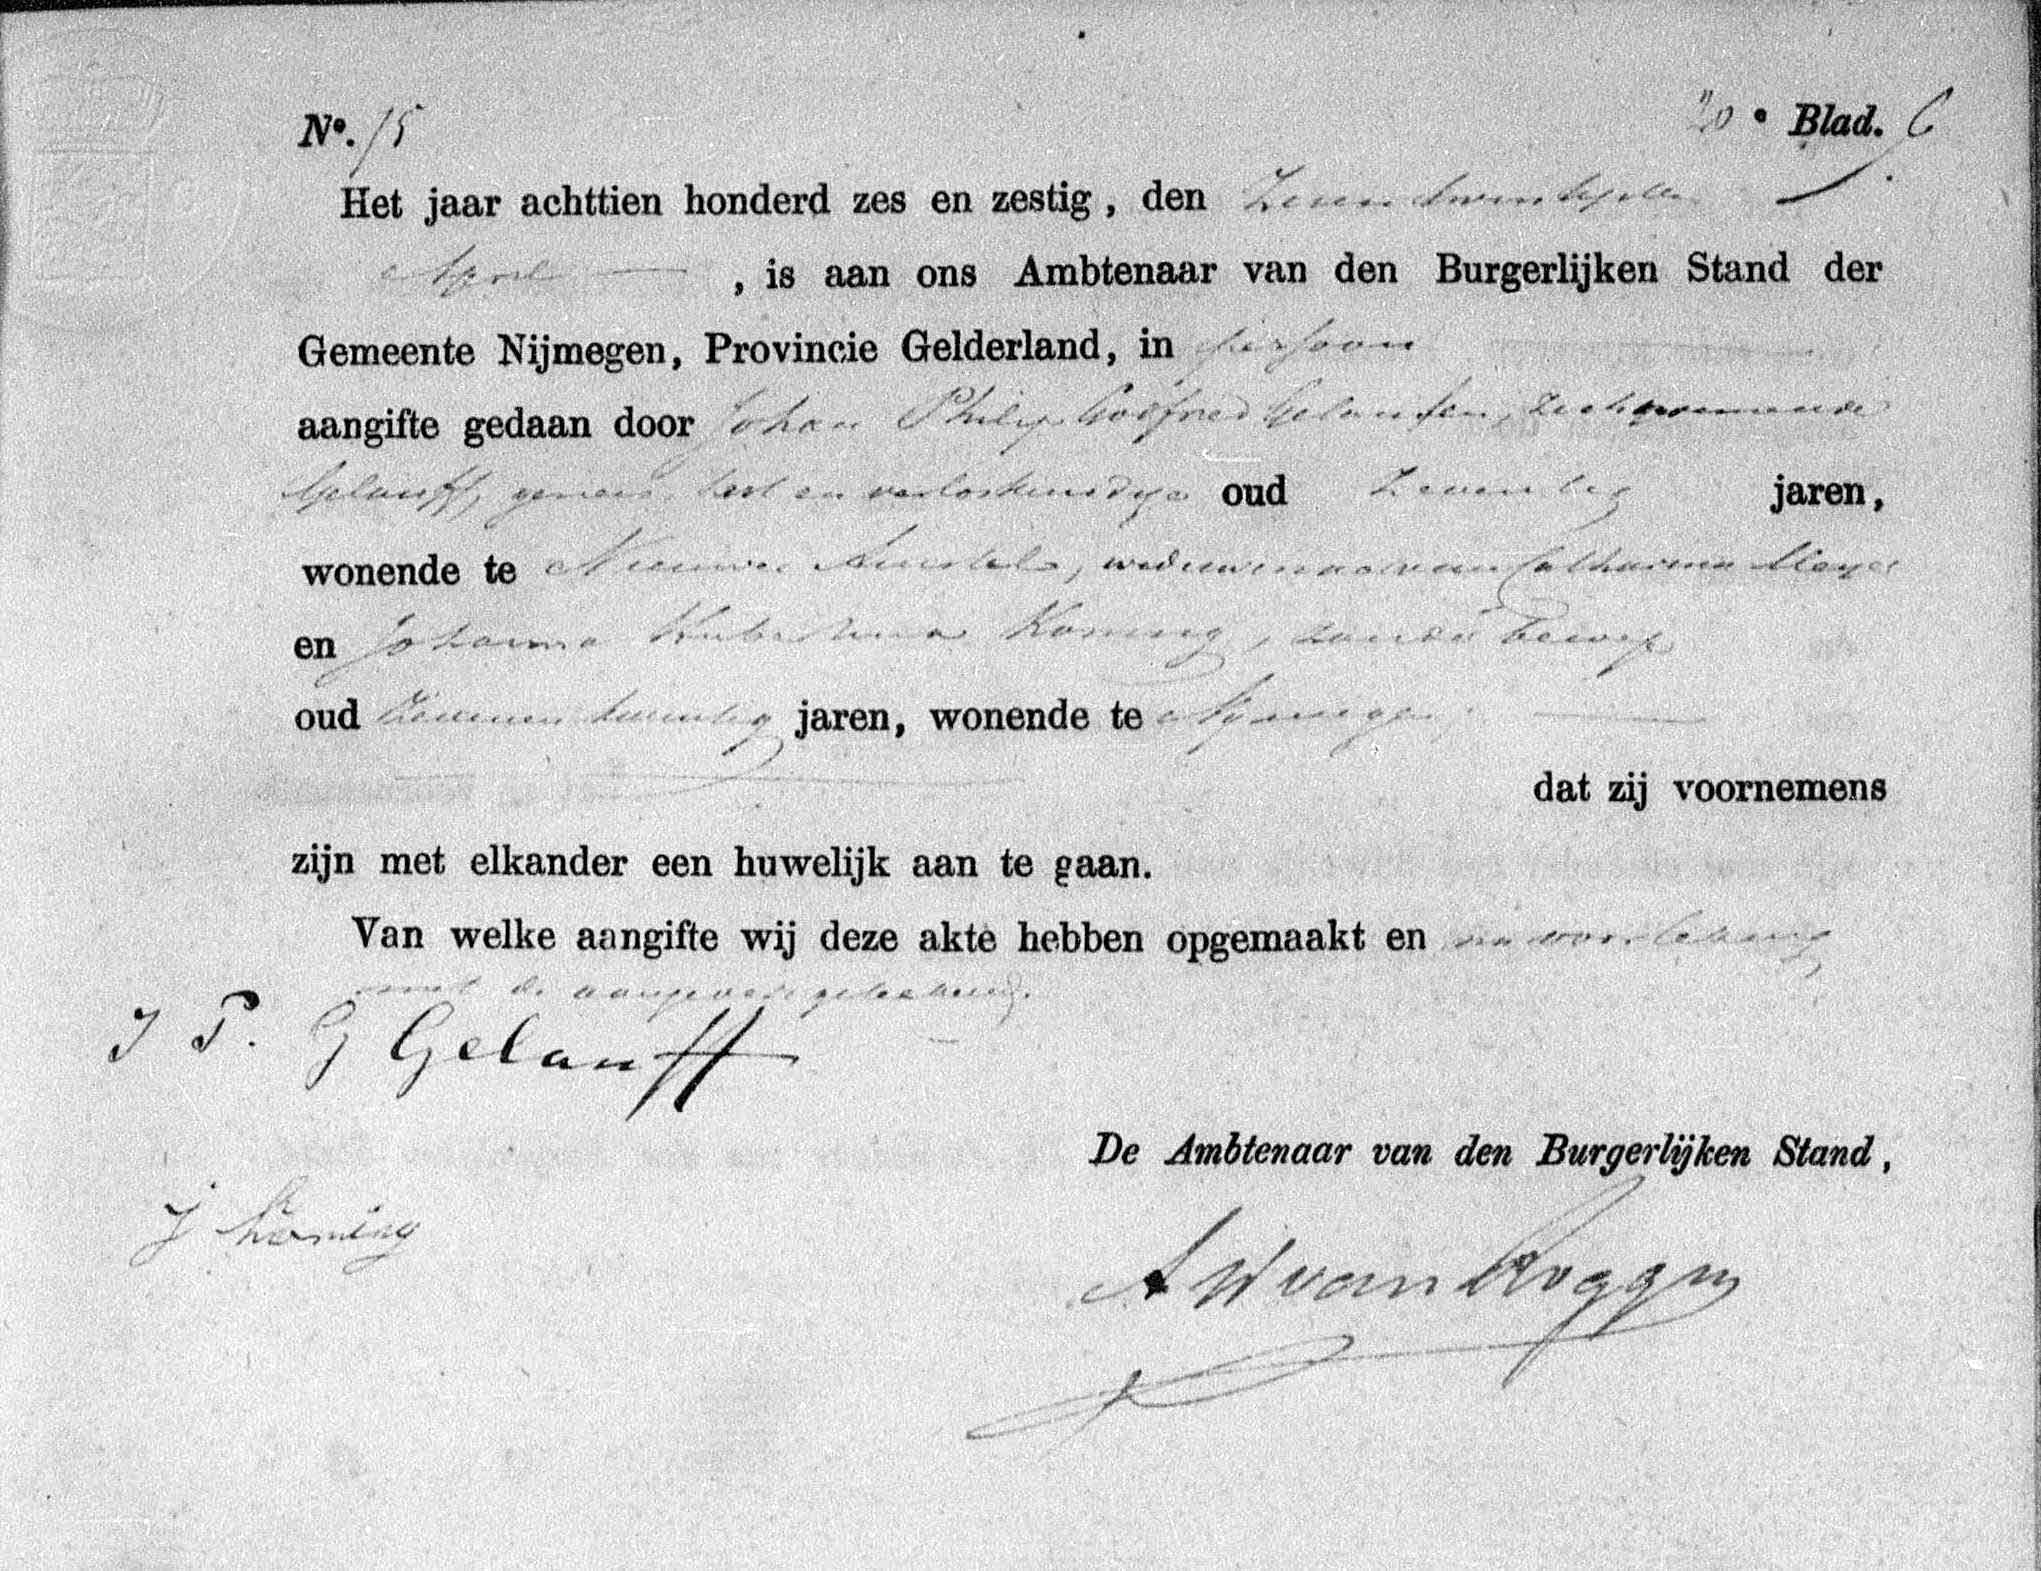 Nº. 15 20e Blad. 6
Het jaar achttien honderd zes en zestig, den
April, is aan ons Ambtenaar van den Burgerlijken Stand der
Gemeente Nijmegen, Provincie Gelderland, in persoon
aangifte gedaan door Johan Philip Godfried Gelaufen, zich noemende
Gelauff, genees, heel en verloskundige oud zeventig jaren,
wonende te Nieuwer Amstel, weduwenaar van Catharina Meyer
en Johanna Hubertina Koning, zonder beroep
oud zevenentwintig jaren, wonende te Nijmegen,
dat zij voornemens
zijn met elkander een huwelijk aan te gaan.
Van welke aangifte wij deze akte hebben opgemaakt en na voorlezing
met de aangevers geteekend.
J P. G Gelauff
De Ambtenaar van den Burgerlijken Stand,
J Koning
A W van Roggen